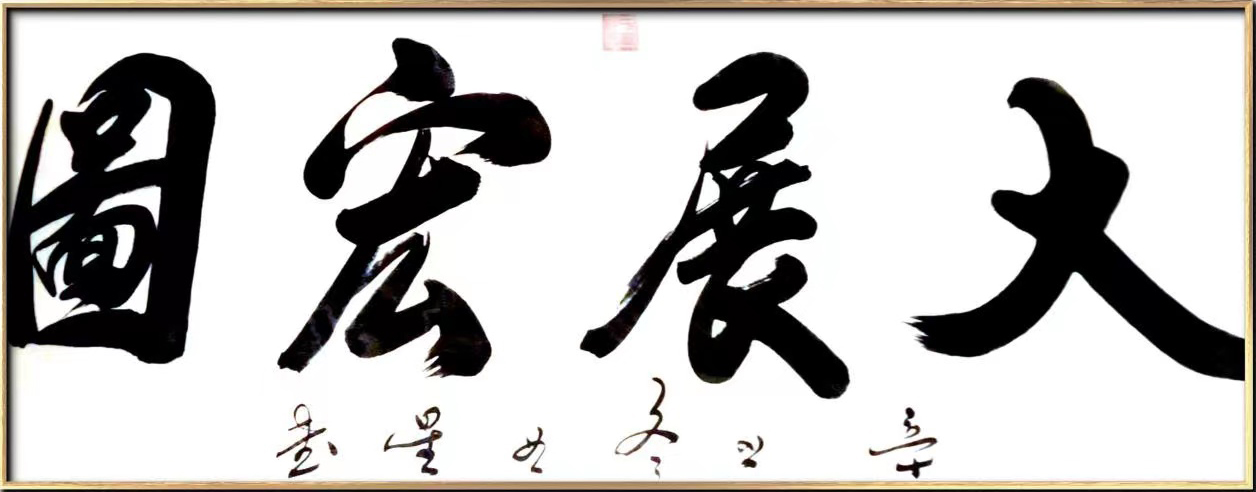 大展宏圖
辛丑冬如星書